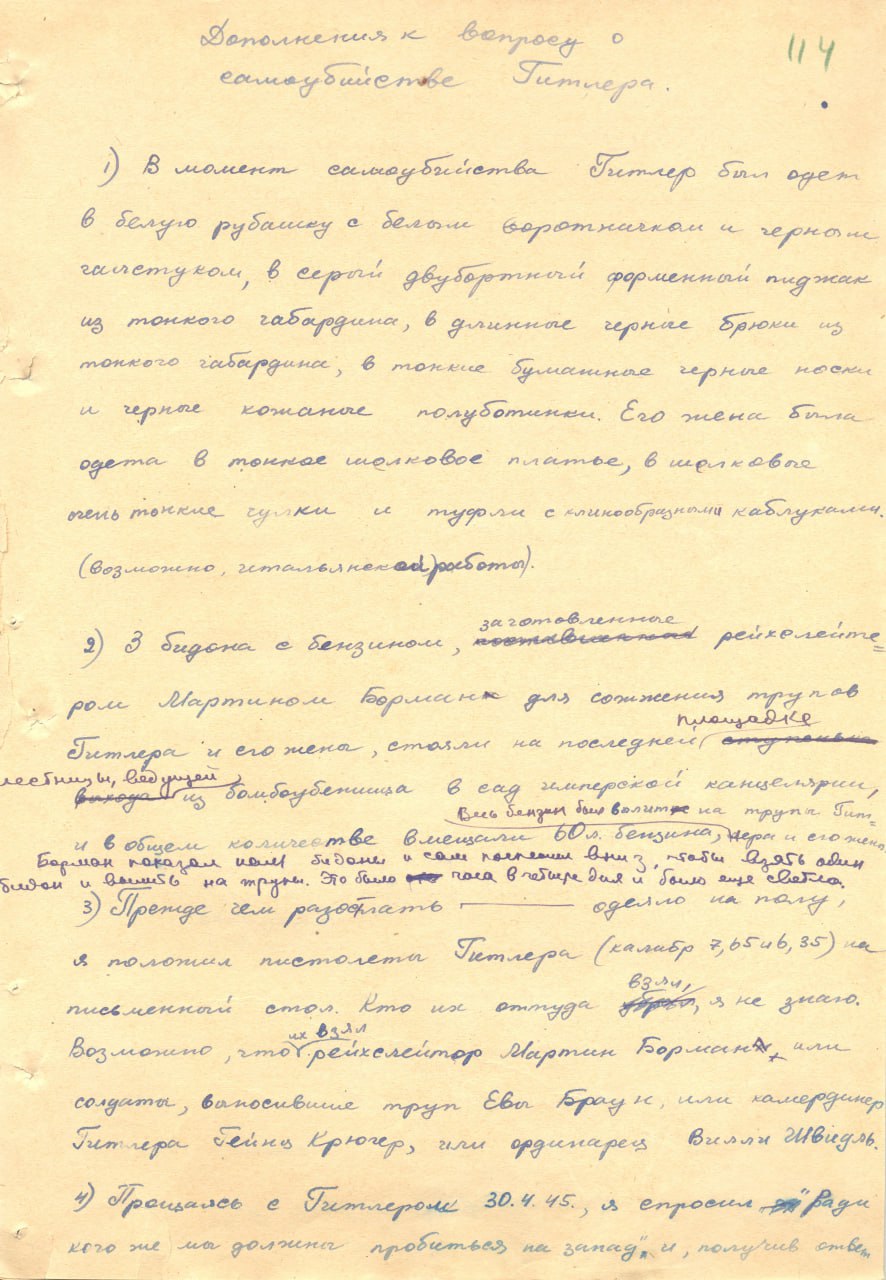 114
Дополнения к вопросу о
самоубийстве Гитлера.
1) В момент самоубийства Гитлер был одет
в белую рубашку с белым воротничком и черным
галстуком, в серый двубортный форменный пиджак
из тонкого габардина, в длинные черные брюки из
тонкого габардина, в тонкие бумажные черные носки
и черные кожаные полуботинки. Его жена была
одета в тонкое шелковое платье, в шелковые
очень тонкие чулки и туфли с клинообразными каблуками.
(возможно, итальянской работы).
заготовленные
2) 3 бидона с бензином, рейхслейте=
ром Мартином Борман для сожжения трупов
площадке
Гитлера и его жены, стояли на последней
лестницы, ведущей
из бомбоубежища в сад имперской канцелярии,
Весь бензин был вылит на трупы Гит=
и в общем количестве вмещали 60 л. бензина, лера и его жены.
Борман показал нам бидоны и сам поспешил вниз, чтобы взять один
бидон и вылить на трупы. Это было часа в четыре дня и было еще светло.
3) Прежде чем разостлать одеяло на полу,
я положил пистолеты Гитлера (калибр 7,65 и 6,35) на
взял,
письменный стол. Кто их оттуда я не знаю.
их взял
Возможно, что рейхслейтор Мартин Борман, или
солдаты, выносившие труп Евы Браун, или камердинер
Гитлера Гейнц Крюгер, или ординарец Вилли Швидль.
4) Прощаясь с Гитлером 30.4.45., я спросил „Ради
кого же мы должны пробиться на запад" и, получив ответ